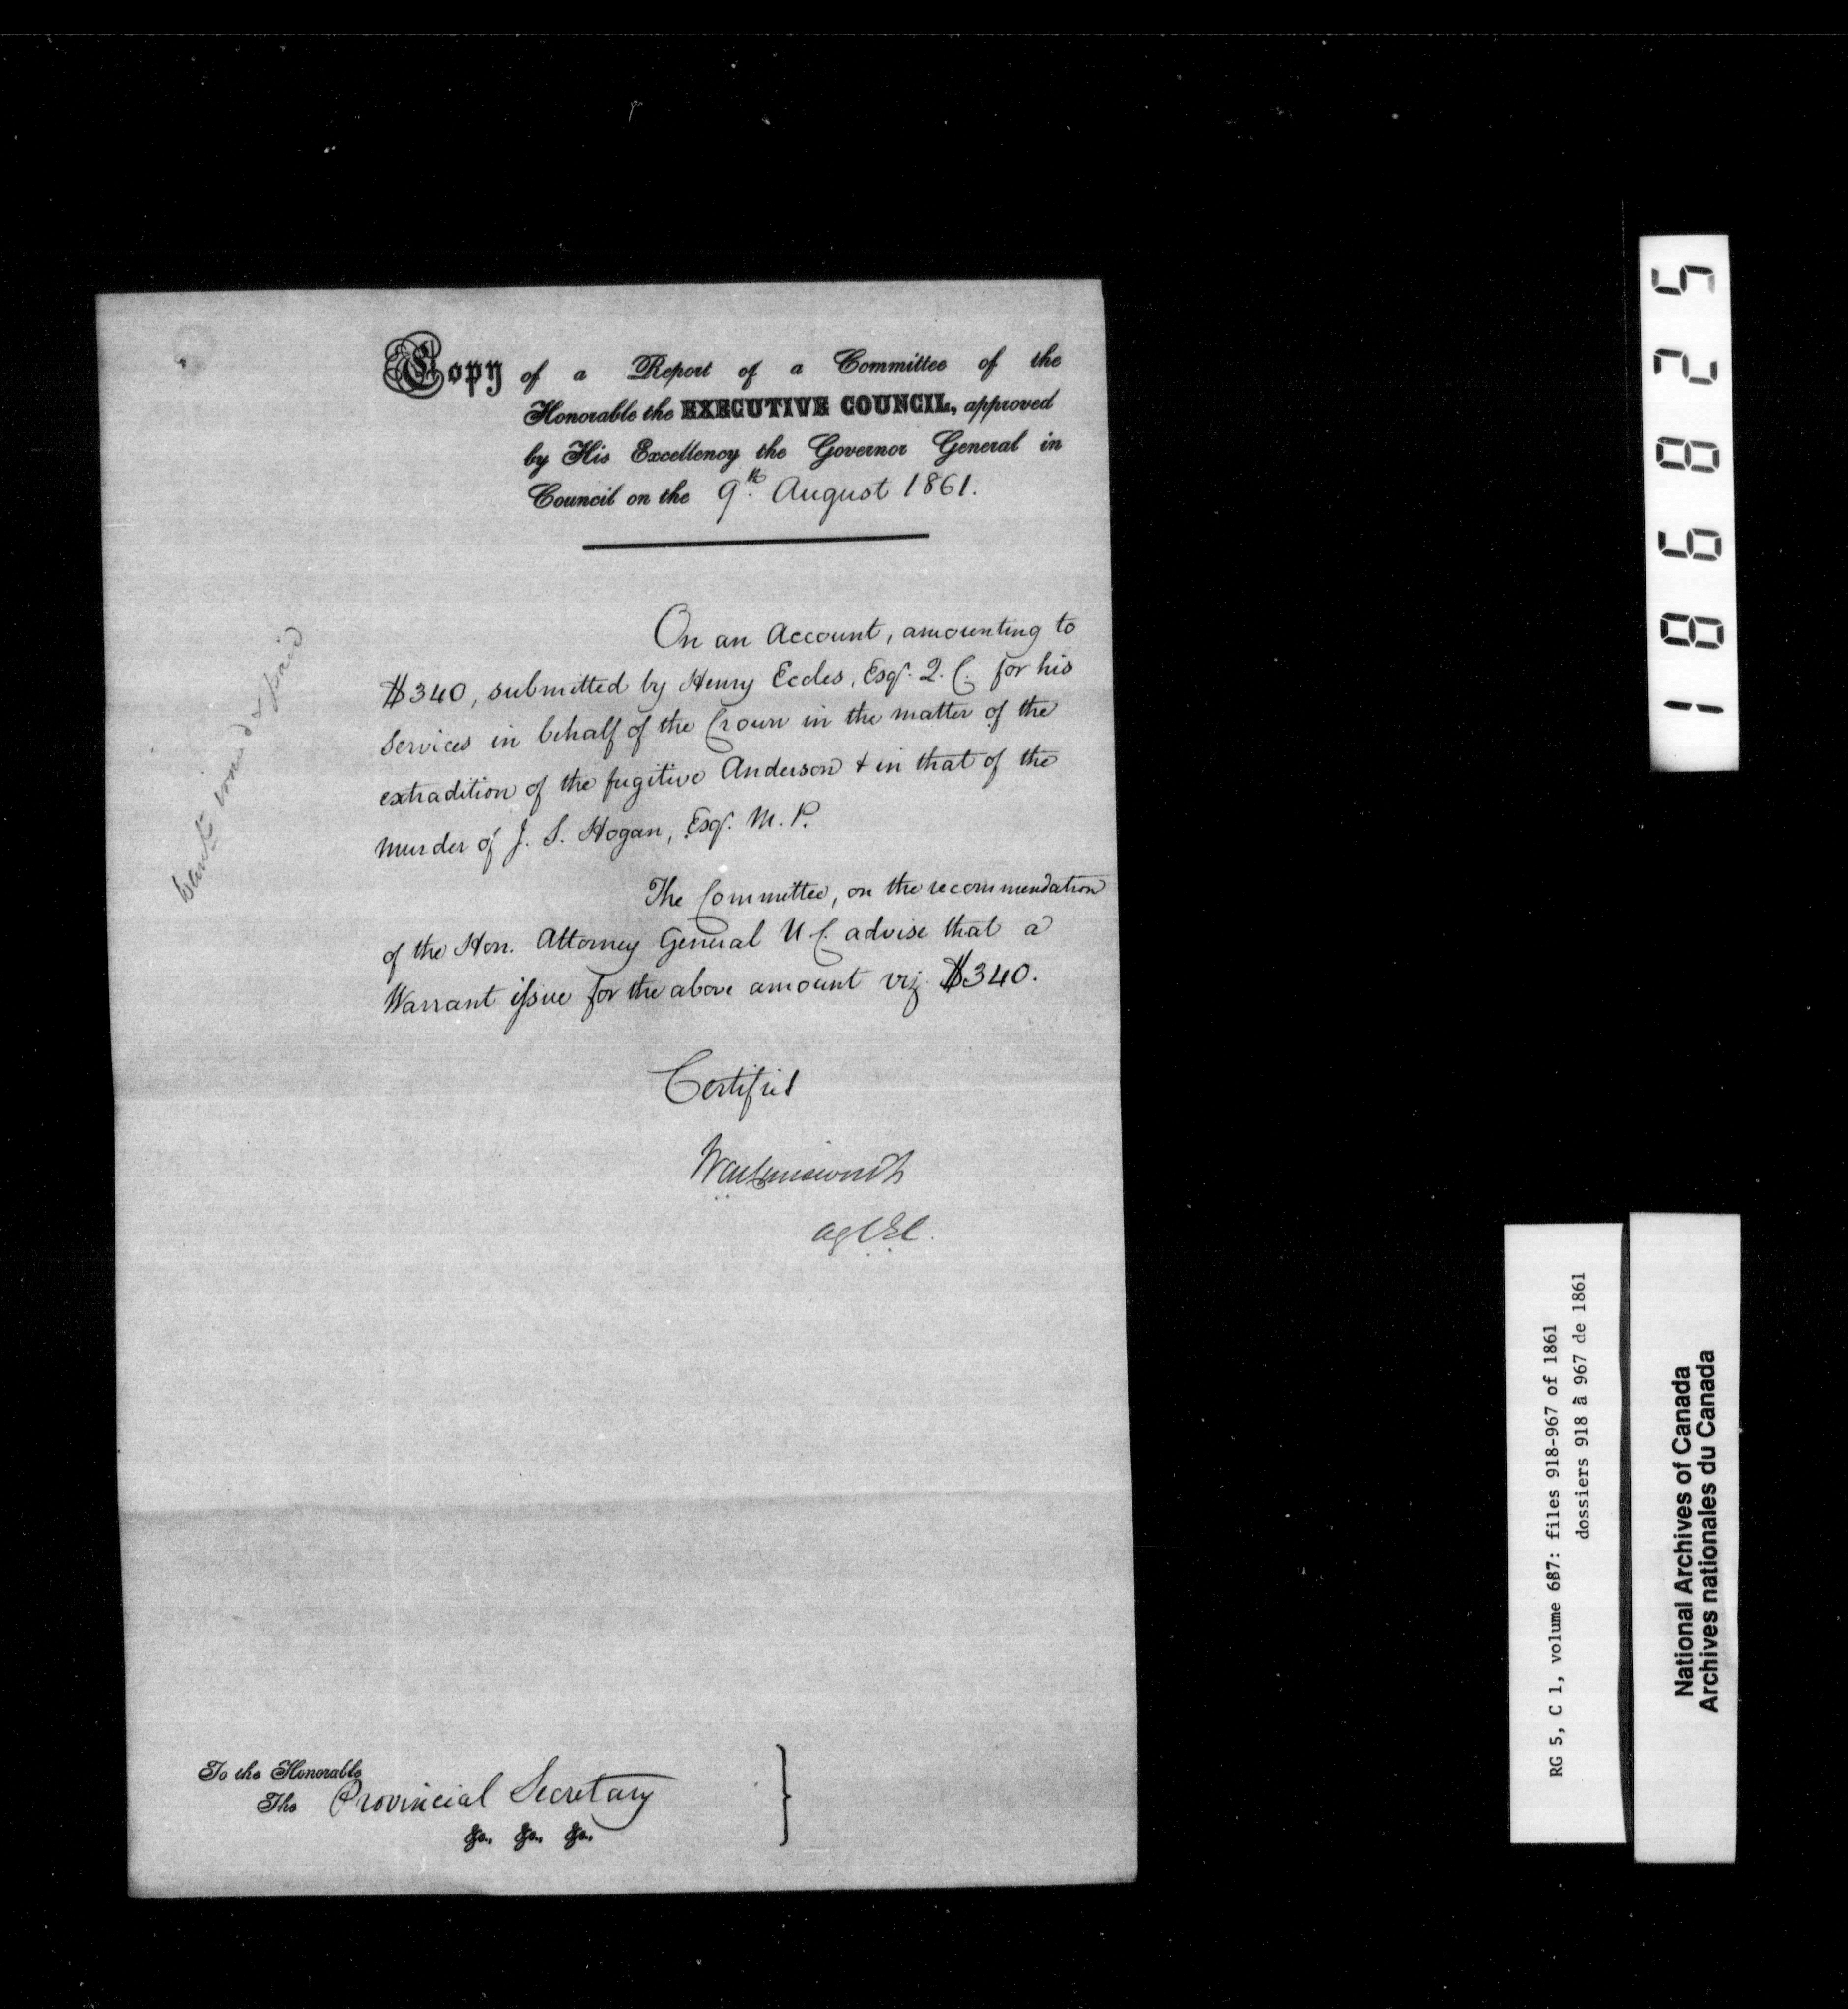 Copy of a Report of a Committee of the
Honorable the EXECUTIVE COUNCIL, approved
by His Excellency the Governor General in
Council on the 9th. August 1861.
On an Account, amounting to
$340, submitted by Henry Eccles, Esqr. Q. C. for his
Services in behalf of the Crown in the matter of the
extradition of the fugitive Anderson & in that of the
murder of J. S. Hogan, Esqr. M. P.
The Committee, on the recommendation
of the Hon. Attorney General U. C. advise that a
Warrant issue for the above amount viz. $340.
Certified
To the Honorable
The Provincial Secretary
&c., &c., &c.
& paid
186825
RG 5, C 1, volume 687: files 918-967 of 1861
dossiers 918 à 967 de 1861
National Archives of Canada
Archives nationales du Canada